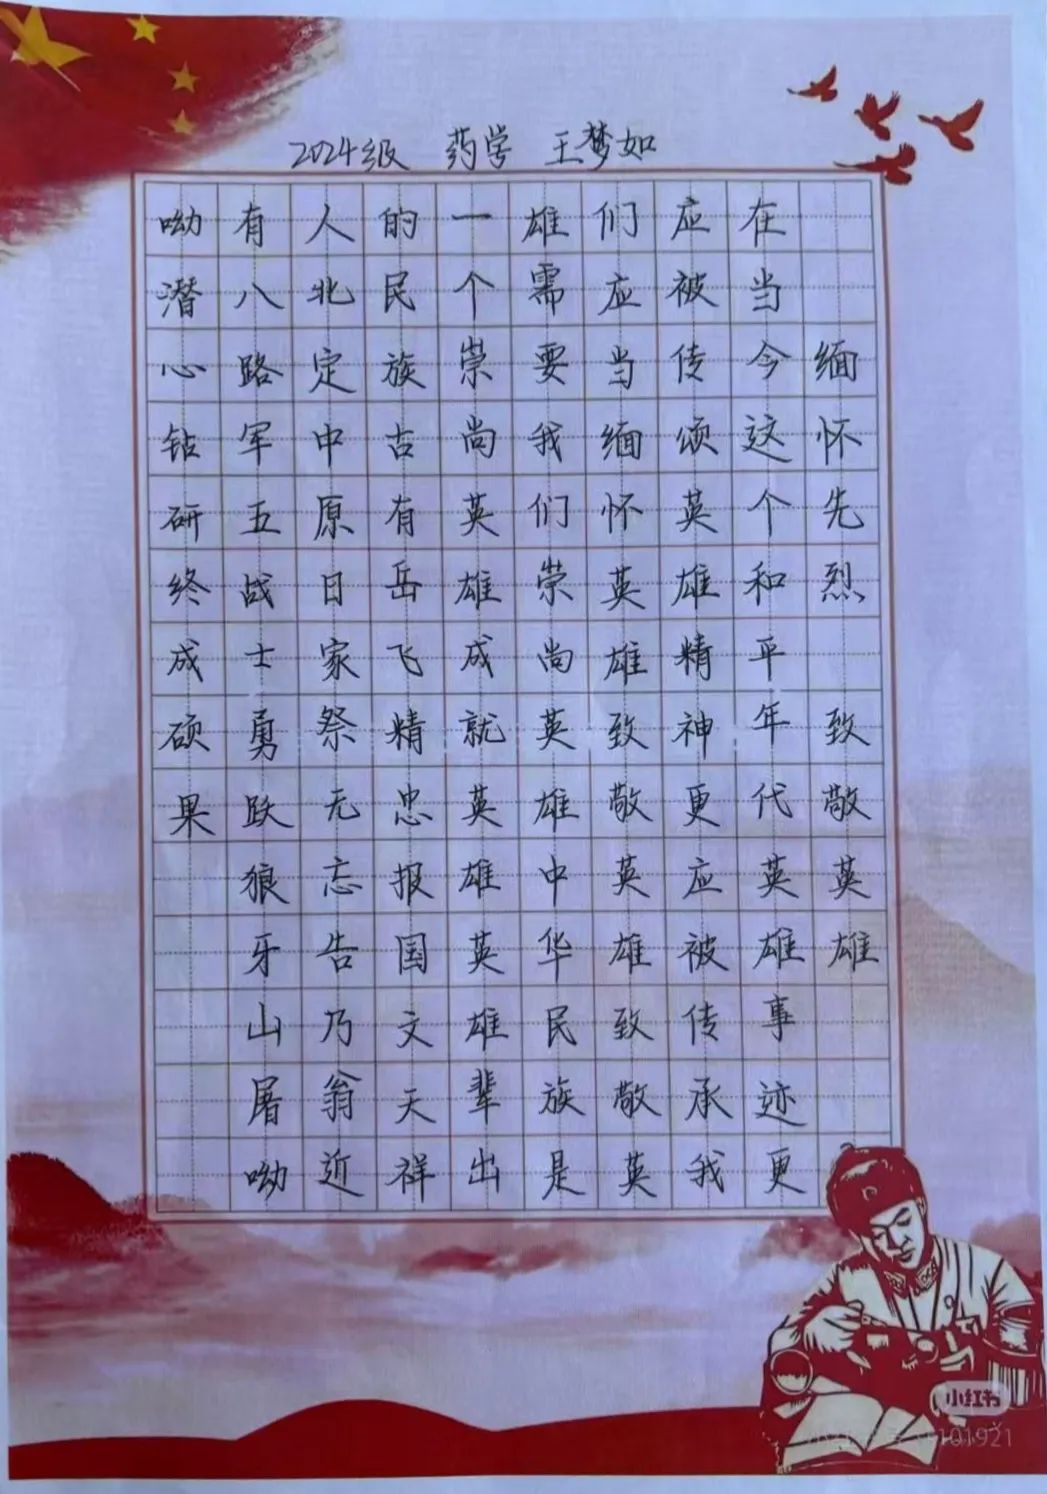 2024级 药学 王梦如
缅怀先烈 致敬英雄
在当今这个和平年代英雄事迹更
应被传颂英雄精神更应被传承我
们应当缅怀英雄致敬英雄致敬英
雄需要我们崇尚英雄中华民族是
一个崇尚英雄成就英雄英雄辈出
的民族古有岳飞精忠报国文天祥
人北定中原日家祭无忘告乃翁近
有八路军五战士勇跃狼牙山屠呦
呦潜心钻研终成硕果
小红书